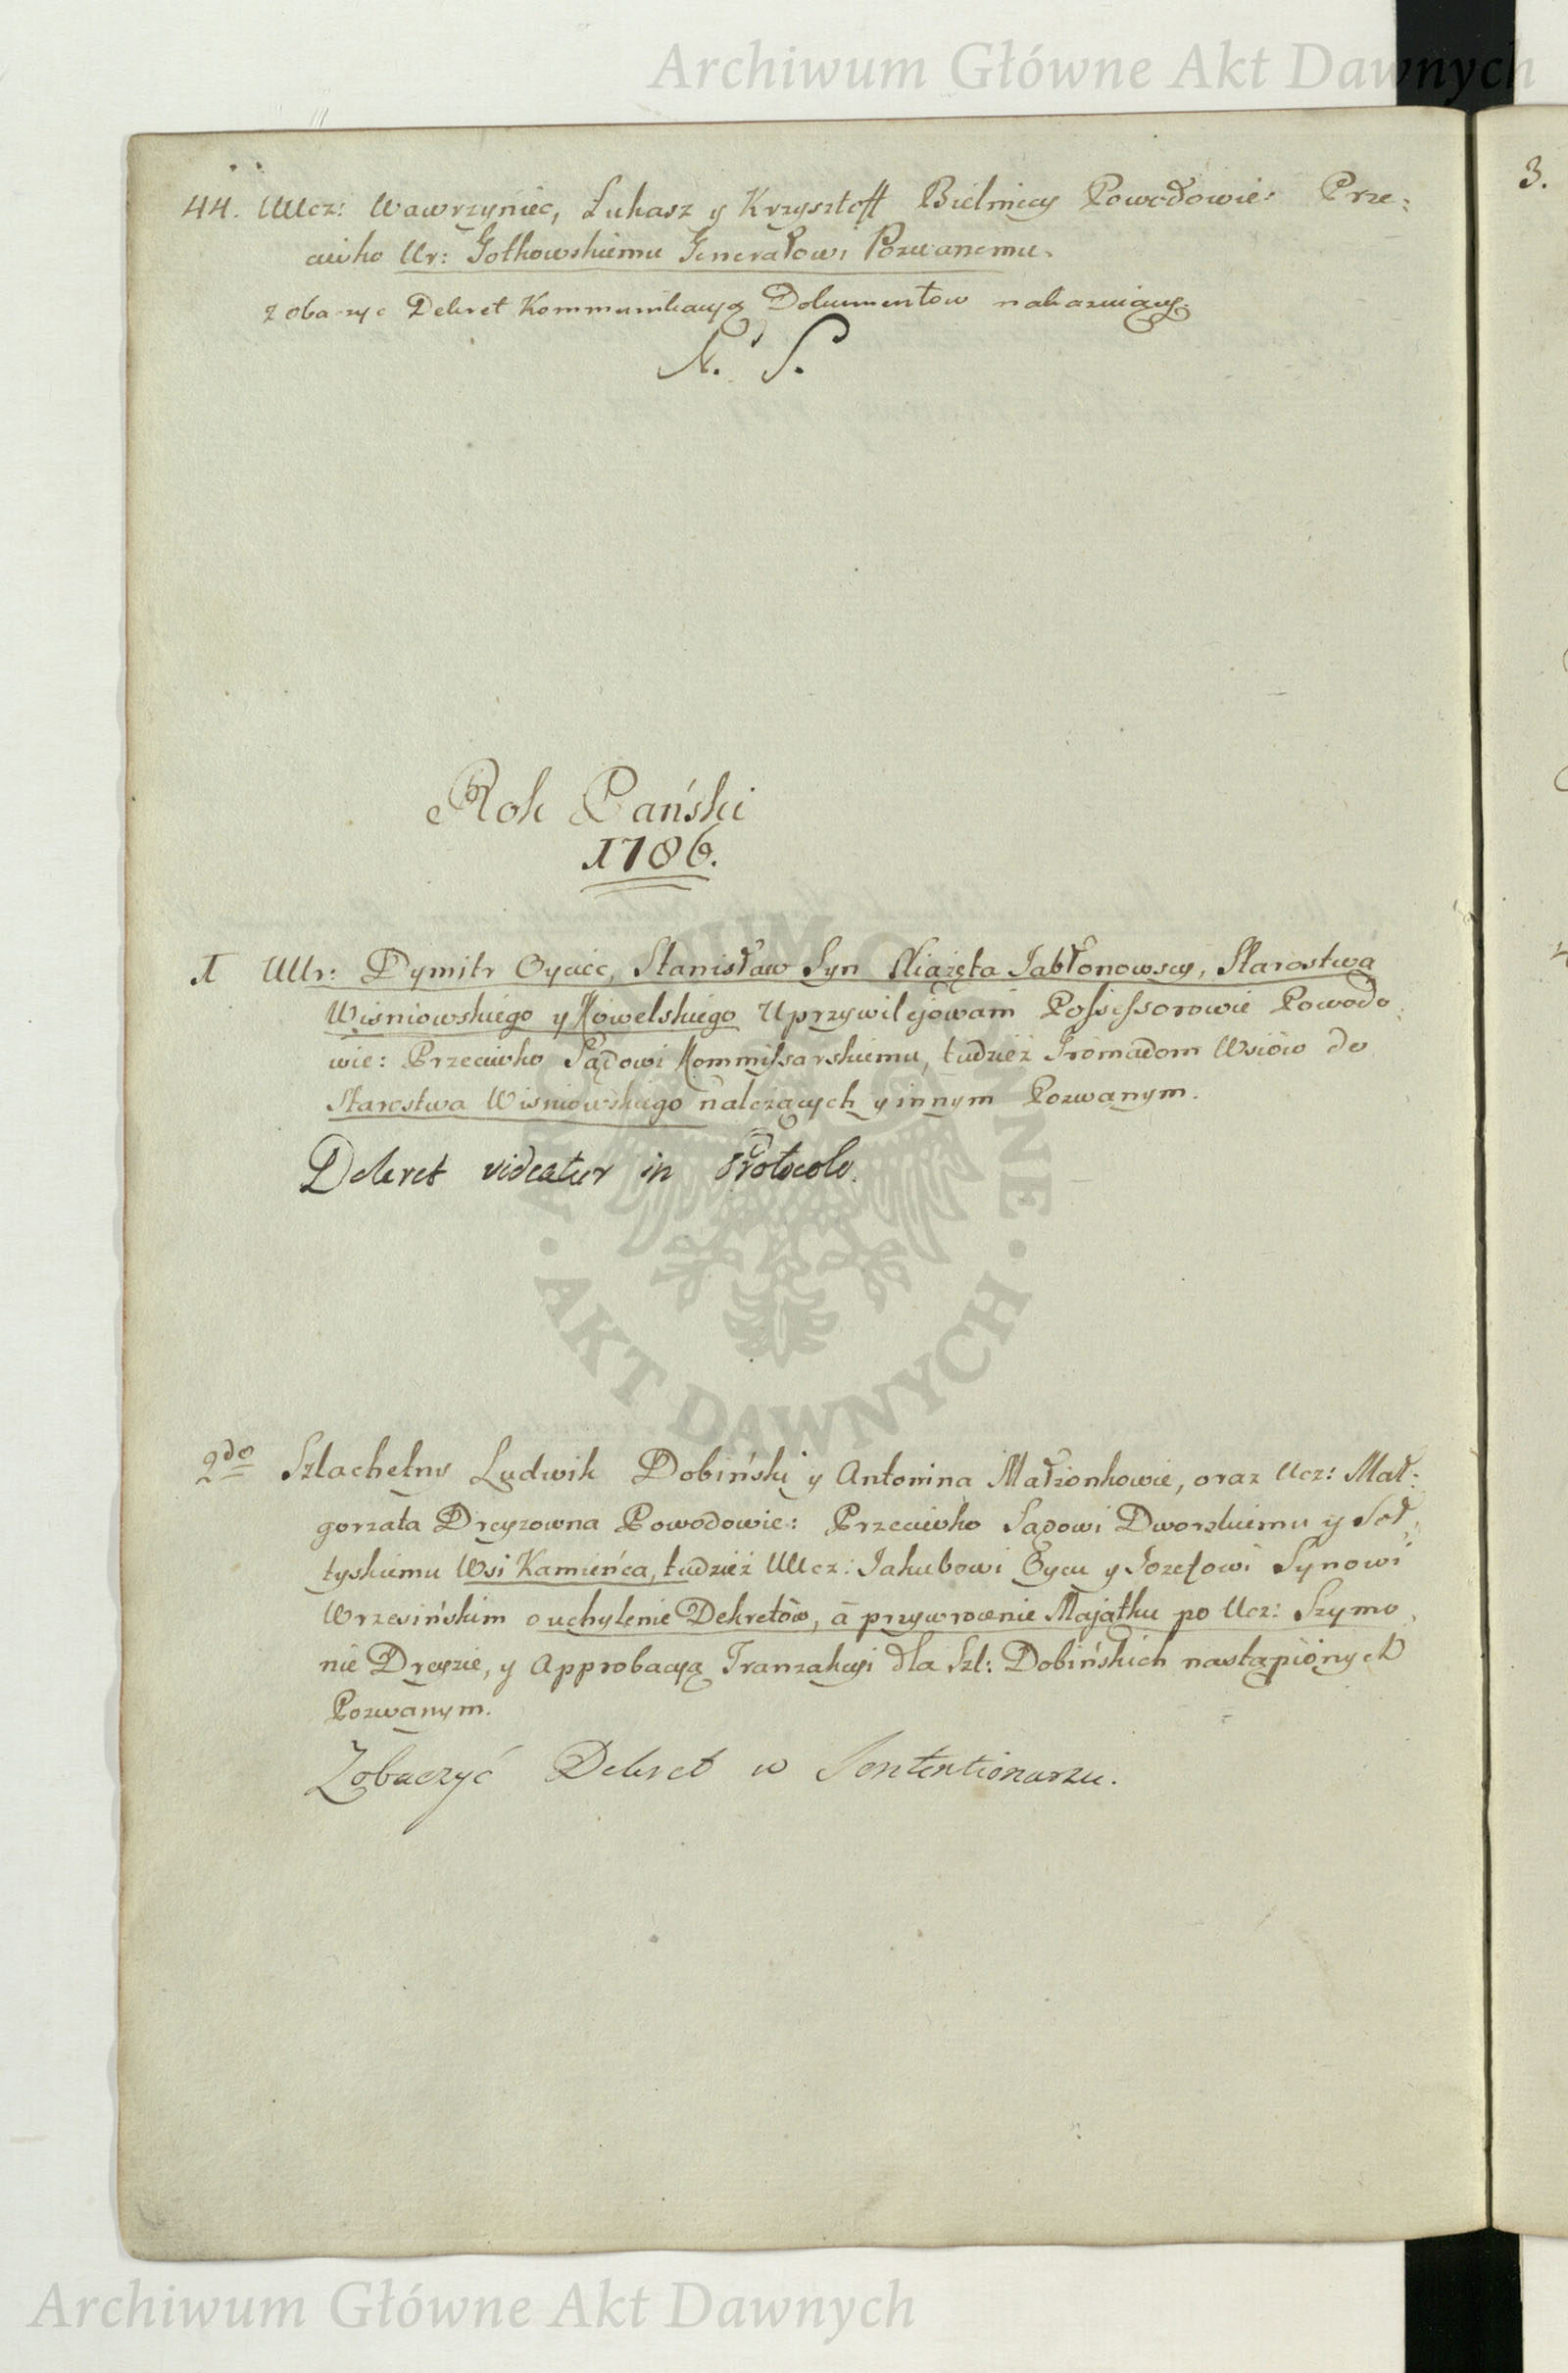 Archiwum Główne Akt Dawnych
44. UUcz: Wawrzyniec, Łukasz y Krzysztoff Bielniccy Powodowie: Prze:
ciwko Ur: Gotkowskiemu Generałowi Pozwanemu.
zobaczyc Dekret Kommunikacyą Dokumentow nakazuiący.
N. S.
Rok Pański
1786.
1 UUr: Dymitr Oyciec, Stanisław Syn Xiążęta Jabłonowscy, Starostwa
Wisniowskiego y Kowelskiego Uprzywilejowani Possessorowie Powodo:
wie: Przeciwko Sądowi Kommissarskiemu, tudzież Gromadom Wsiów do
Starostwa Wisniowskiego należących y innym Pozwanym.
Dekret videatur in Protocolo.
2do Szlachetny Ludwik Dobiński y Antonina Małżonkowie, oraz Ucz: Mał:
gorzata Dreyzowna Powodowie: Przeciwko Sądowi Dworskiemu y Soł:
tyskiemu Wsi Kamieńca, tudzież UUcz: Jakubowi Oycu y Jozefowi Synowi
Wrzesińskim o uchylenie Dekretów, a przywrocenie Majątku po Ucz: Szymo:
nie Dreyzie, y Approbacyą Tranzakcyi dla Szl: Dobińskich nastąpionych
Pozwanym.
Zobaczyć Dekret w Sententionarzu.
3.
4
ARCHIWUM GŁÓWNE · AKT DAWNYCH ·
Archiwum Główne Akt Dawnych